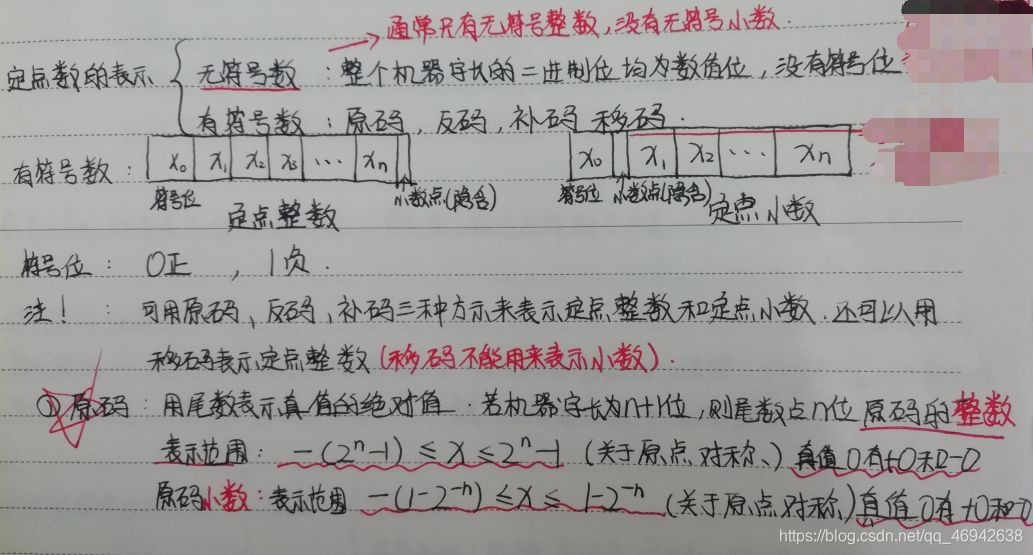 通常只有无符号整数,没有无符号小数.
定点数的表示
无符号数:整个机器字长的二进制位均为数值位,没有符号位
有符号数:原码,反码,补码 移码.
有符号数: x₀ x₁ x₂ x₃ ... xn x₀ x₁ x₂ ... xn
符号位 小数点(隐含) 符号位 小数点(隐含)
定点整数 定点小数
符号位: 0正 , 1负.
注! : 可用原码、反码、补码三种方示来表示定点整数和定点小数.还可以用
移码表示定点整数(移码不能用来表示小数).
① 原码:用尾数表示真值的绝对值.若机器字长为n+1位,则尾数占n位 原码的整数
表示范围: -(2ⁿ-1) ≤ x ≤ 2ⁿ-1 (关于原点对称、) 真值0有+0和-0
原码小数:表示范围 -(1-2⁻ⁿ) ≤ x ≤ 1-2⁻ⁿ (关于原点对称) 真值0有+0和-0
https://blog.csdn.net/qq_46942638